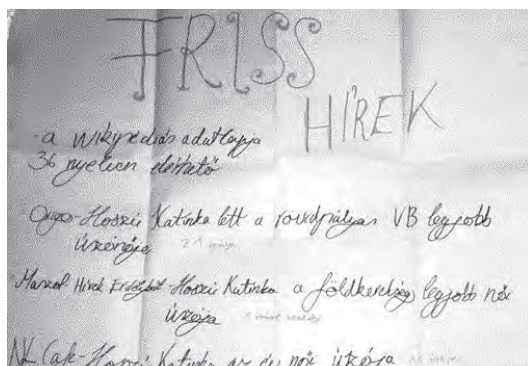 FRISS
HÍREK
-a wikipediás adatlapja
36 nyelven elérhető
Origo-Hosszú Katinka lett a rövidpályás VB legjobb
úszónője
Hírek Hosszú Katinka a földkerekség legjobb női
úszója
NL Cafe-Hosszú Katinka az év női úszója